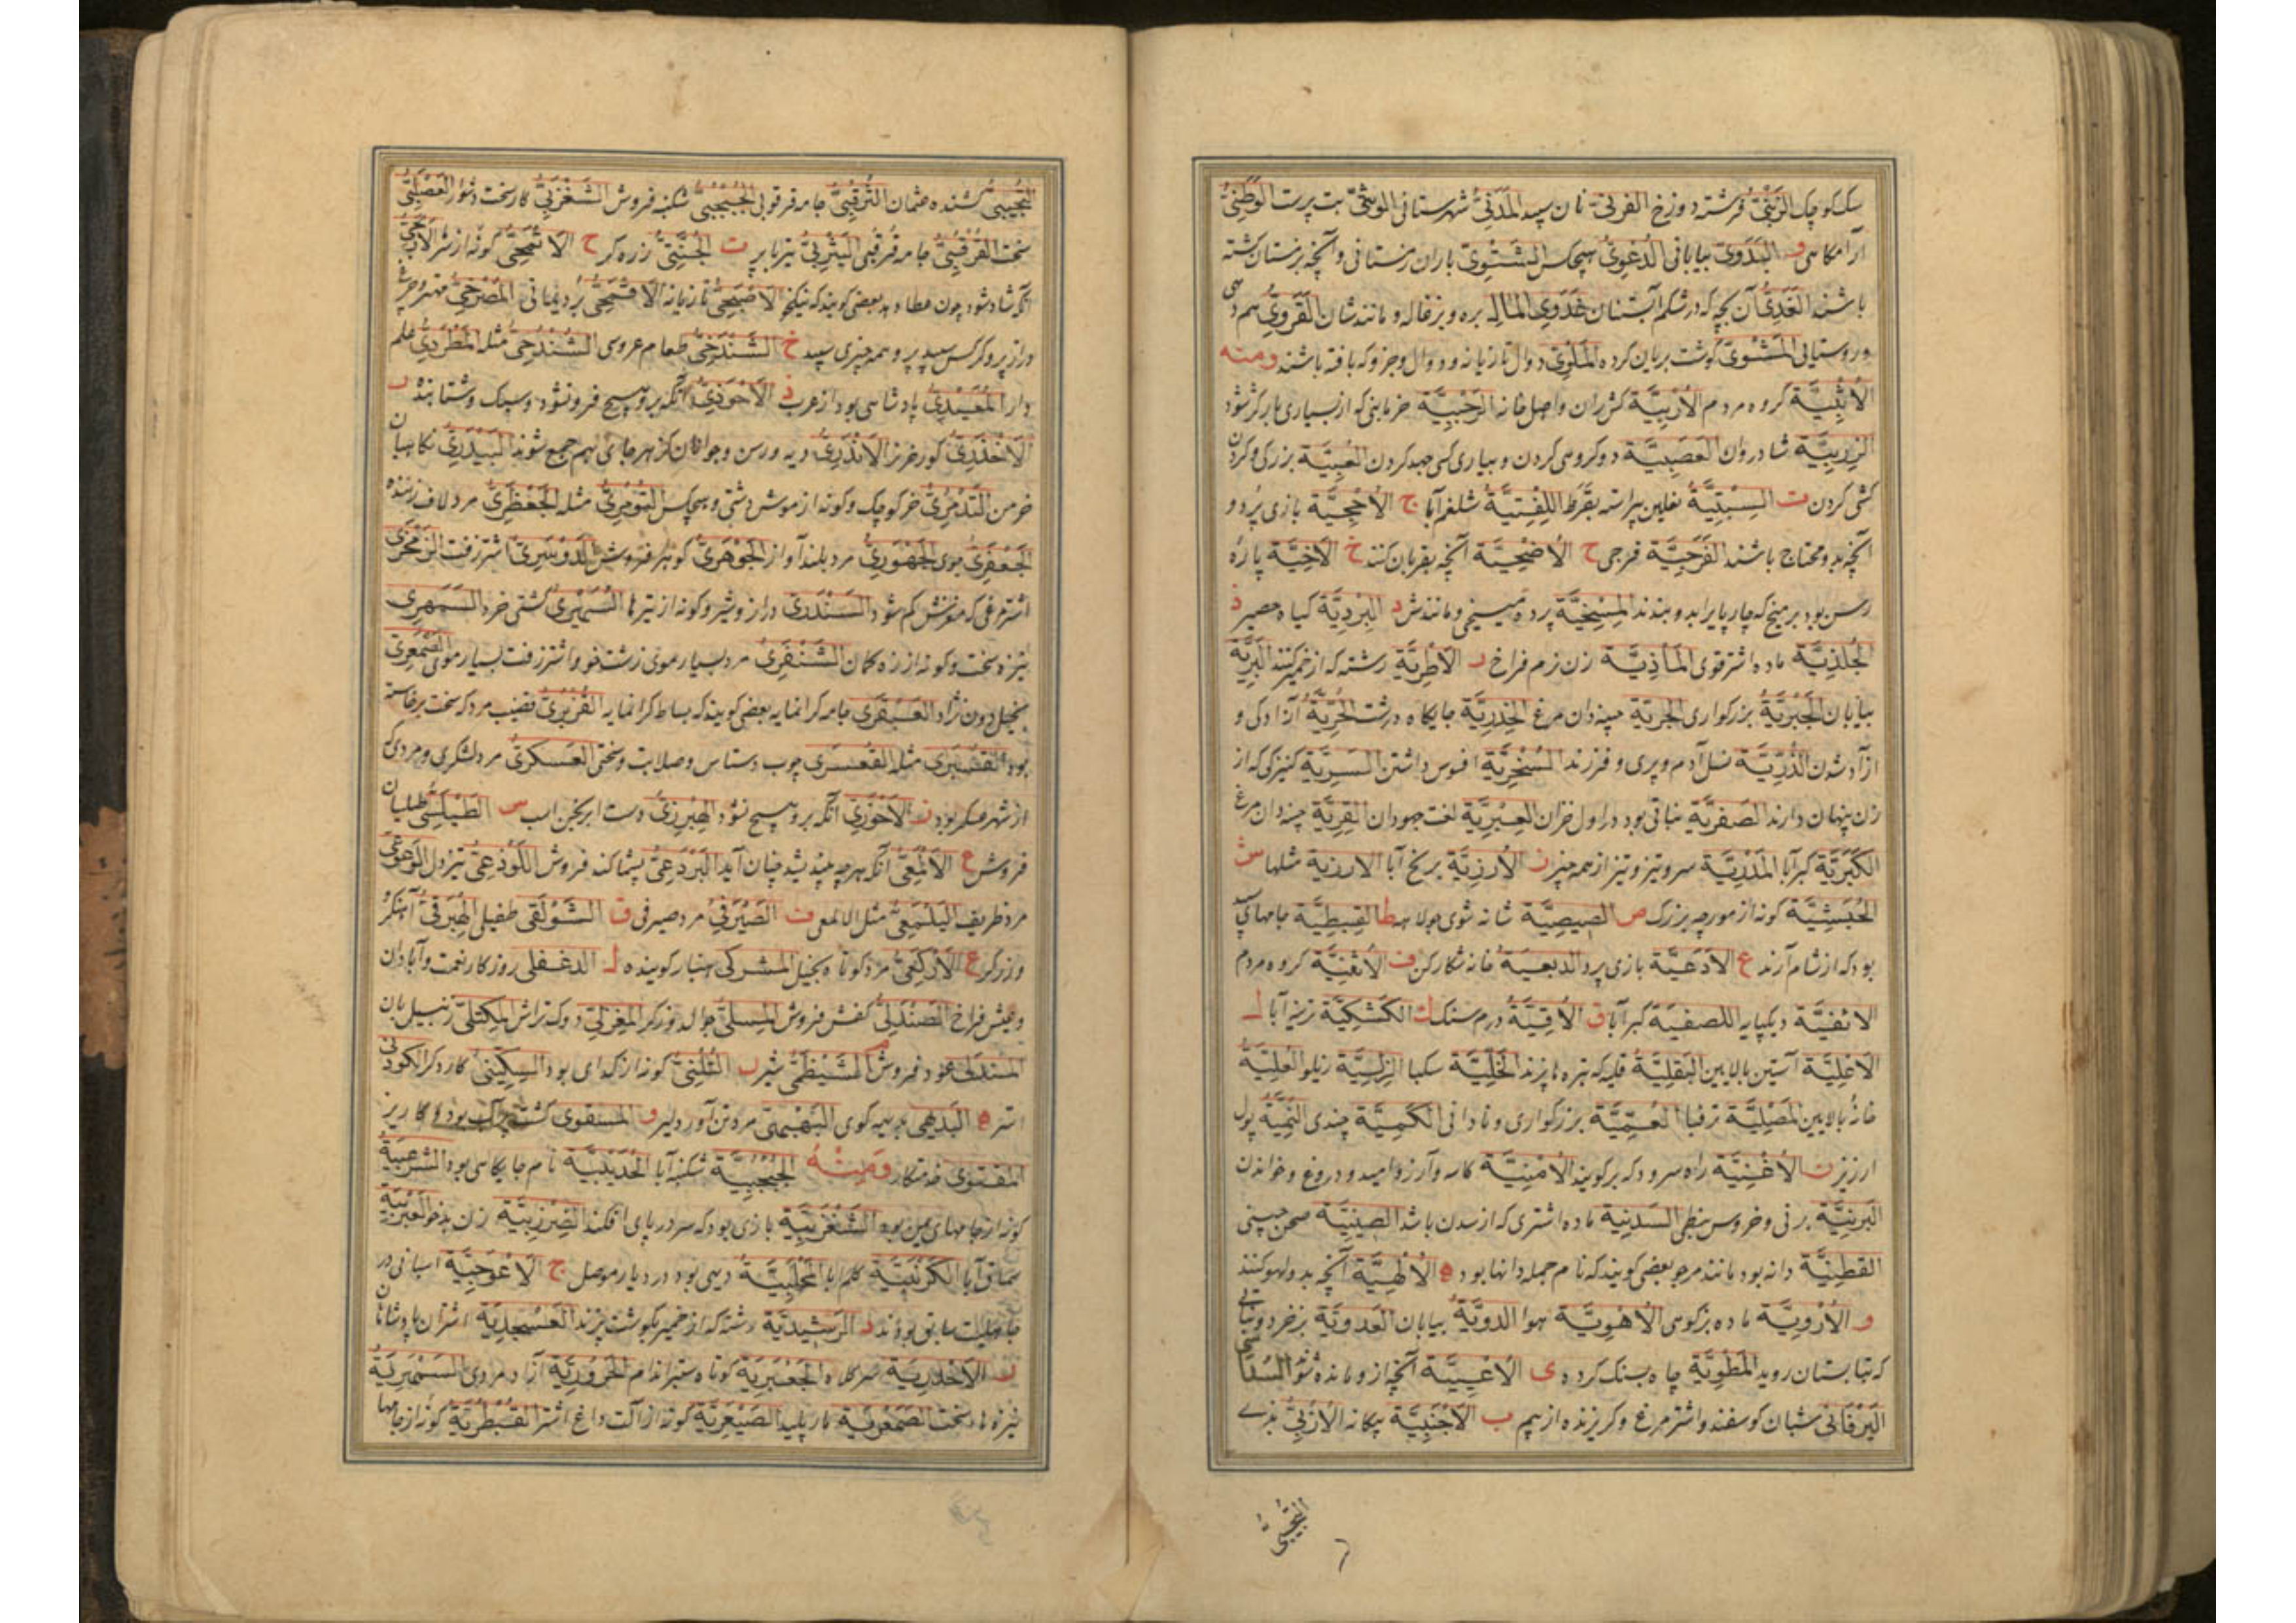 سک کوچک الزَبَنْیُّ فرشته دوزخ الفرنیّ نان سپید المَدَنِیُّ شهرستانی الوثنیّ بت پرست الوَطَنِیُّ
آرامگاهی و البَدَوِیّ بیابانی الدُعْوِیُّ هیچکس الشَتْوِیّ باران زمستانی و آنچه بزمستان کشته
باشند الغَدَوِیُّ آن بچه که در شکم آبستنان غَدَوِی المال بره و بزغاله و مانند شان القَرَوِیُّ هم دهی
و روستایی المَشْوِیّ گوشت بریان کرده المَلْوِیّ دوال تازیانه و دوال و جز و که بافته باشند ومنه
الأُثْبِیَّة گروه مردم الأُرْبِیَّة کش ران و اصل خانه الرَجَبِیَّة خرمابنی که از بسیاری بار کژ شود
الزِرْبِیَّة شادروان العَصَبِیَّة دو گروهی کردن و بیاری کسی جهد کردن العُبِیَّة بزرگی و گردن
کشی کردن ت السِبْتِیَّةُ نعلین پیراسته بقَرَظ اللِفْتِیَّةُ شلغم آبا ج الأُحْجِیَّة بازی پرد و
آنچه بدو محتاج باشند الفَرَجِیَّة فرجی ح الأُضْحِیَّة آنچه بقربان کنند خ الآخِیَّة پاره
رسن بود بر میخ که چارپا را بدو بندند المِسْخِیَّة پرده مسیخی و مانندش د البَرْدِیَّة گیاه حصیر ذ
الجُلْذِیَّة ماده اشتر قوی الماذِیَّة زن زم فراخ ر الاَطْرِیَّة رشته که از خمیر کنند البَرِیَّة
بیابان الجَبَرِیَّةُ بزرگواری الجِرِّیَّة چینه دان مرغ الحِذْرِیَّة جایگاه درشت الحُرِّیَّة آزادگی و
آزاد شدن الذُرِّیَّة نسل آدم و پری و فرزند السُخْرِیَّة افسوس داشتن السُرِّیَّة کنیزکی که از
زن پنهان دارند الصَفَرِیَّة نباتی بود در اول خزان العِبْرِیَّة لغت جهودان القِرِّیَّة چینه دان مرغ
الکَبَرِیَّة کبر آبا المَدَرِیَّة سرو تیز و تیز از همه چیز ز الأُرْزِیَّة برنج آبا الارزیة مثلها س
الحَبَشِیَّة گونه از مورچه بزرگ ص الصیصِیَّة شانه شوی جولاهه ط القِبْطِیَّة جامهایی
بود که از شام آرند ع الاَدْعِیَّة بازی پرد الدبعیة خانه شکار کن ف الأَثْفِیَّة گروه مردم
الاثفیّة دیکپایه اللصفیة کبر آبا ق الأُوقِیَّةُ درم سنگ ك الکَشْکِیَّة ترینه آبا ل
الاَعْلِیَّة آستین بالایین البَقْلِیَّةُ قلیه که بتره پزند الخَلِّیَّة سکبا الزِلِّیَّة زیلو العُلِّیَّةُ
خانه بالایین المَصْلِیَّة ترفبا العُمِّیَّة بزرگواری و نادانی الکَمِّیَّة چندی النُمِّیَّة پول
ارزیز ن الأُغْنِیَّة راه سرود که برگویند الأُمْنِیَّة کامه و آرزو و امید و دروغ و خواندن
البَرْنِیَّة برنی و خروس نبطی السَدَنِیَّة ماده اشتری که از سدن باشد الصینِیَّة صحن چینی
القطْنِیَّة دانه بود مانند مرجو بعضی گویند که نام جمله دانها بود ه الأُلْهِیَّة آنچه بدو لهو کنند
و الأُرْوِیَّة ماده بز کوهی الأُهْوِیَّة هوا الدوِیَّةُ بیابان الغدوِیَّة بز خرد و نباتی
که بتابستان روید المَطْوِیَّة چاه بسنگ کرده ی الأُعْیِیَّة آنچه از و مانده شو السُدَاسی
الیَرْفَائی شبان گوسفند و اشتر مرغ و گریزنده از بیم ب الاَجْنَبِیَّة بیگانه الأُرْبِیُّ بدی
النُجَیْبیُّ
النُجَیْبیُّ کشنده عثمان الثُرْقُبِیُّ جامه فرقوبی الجُبْجُبِیُّ شکنبه فروش الشَغْزَبِیُّ کار سخت دشوار العَصْلَبِیُّ
سخت الفُرْقُبِیُّ جامه فرقبی الیَثْرِبِیُّ تیرها پر ت الجُنِّیَّتیُّ زره گر ح
آنکه شاد شود چون عطا دهد بعضی گویند که نیکخو الاَصْبَحِیُّ تازیانه الاَقْمَحِیُّ برد یمانی المَضْرَحِیُّ مهتر و چرغ
دراز پر و کرکس سپید پر و همه چیزی سپید خ الشَنْدَخِیُّ طعام عروسی الشُنْدُخِیُّ مثله المَطْرَدِیُّ علم
دار المُعَیْدِیُّ پادشاهی بود از عرب ذ الاَحْوَذِیُّ آنکه برو هیچ فرو نشود و سبک و شتابنده ر
الاَخْدَرِیُّ گور خر نر الاَنْدَرِیُّ دیه و رسن و جوانان کز هر جای بهم جمع شوند البَیْدَرِیُّ نگاهبان
خرمن التَدْمُرِیُّ خر کوچک و گونه از موش دشتی و هیچکس التومُرِیُّ مثله الجَعْظَرِیُّ مرد لاف زننده
الجَعْفَرِیُّ جوی الجَهْوَرِیُّ مرد بلند آواز الجَوْهَرِیُّ گوهر فروش الدَوْسَرِیُّ اشتر زفت الزَمْخَرِیُّ
اشتر مرغی که مغزش کم شود السَنْدَرِیُّ دراز و شیر و گونه از تیرها السُمَیْرِیُّ کشتی خرد السَمْهَرِیُّ
نیزه سخت و گونه از زه کمان الشَنْفَرِیُّ مرد بسیار موی زشت خو و اشتر زفت بسیار موی الصَمْعَرِیُّ
بخیل دون نژاد العَبْقَرِیُّ جامه گرانمایه بعضی گویند که بساط گرانمایه القُزْبُرِیُّ قضیب مرد که سخت برخاسته
بود القَسْبَرِیُّ مثله القَعْسَرِیُّ چوب دستاس و صلابت و سختی العَسکرِیُّ مرد لشکری و مردی که
از شهر عسکر بود ز الاَحْوَزِیُّ آنکه برو هیچ نشود الهِبْرِزِیُّ دست ابرنجن اب س الطَیْلَسِیُّ طیلسان
فروش ع الاَلْمَعِیُّ آنکه هر چه بیندیشد چنان آید البَرْدَعِیُّ پشماکند فروش اللَوْذَعِیُّ تیز دل الوَعْوَعِیُّ
مرد ظریف الیَلْمَعِیُّ مثل الالمعی ف الصَیْرَفِیُّ مرد صیرفی ق الشَوْلَقِیُّ طفیلی الهِبْرَقیُّ آهنگر و
و زرگر ع الاَرْکَعِیُّ مرد کوتاه بخیل المشرکی بسیار گوینده ل الدغفلی روزگار نعمت و آبادان
و عیش فراخ الصَنْدَلِیُّ کفش فروش المِسَلِّیُّ جوالدوز گر المِغْزَلِیُّ دوک تراش المِکْتَلِیُّ زنبیل بان
المندلی عود فروش الشَیْظَمِیُّ شیر ن الثُلُثِیُّ گونه از گدای بود السِکِّینیُّ کاردگر الکودنی
استر ه البَدیهی بدیهه گوی البَهْیَمِیُّ مرد تن آور دلیر و المسقوی کشت چاک بود با کاریز
المقتوی خدمتکار ومنهُ الجُبْجُبِیَّة شکنبه آبا الحُدَیْبِیَّة نام جایگاهی بود الشَرْعَبِیَّةُ
گونه از جامهای یمن بود الشَغْزَبِیَّة بازی بود که سر در پای افکند الضِرْزِبِیَّة زن بدخو العَبْرَبِیَّة
سماق آبا الکَرْنَبِیَّة کلم با المُحَلَّبِیَّةُ دیهی بود در دیار موصل ج الاَعْوَجِیَّة اسبانی در
جاهلیت سابق بودند د الرَشیدِیَّة رشته که از خمیر بگوشت پزند العَسْجَدِیَّة اشتران پادشاهان
ر الاَخْدَرِیَّة الجَعْبَرِیَّة کوتاه ستبر اندام الحَرُورِیَّة آزاد مردی السَمْهَرِیَّة
نیزه ها سخت الصَمْعَرِیَّة مار پلید الصَیْعَرِیَّة گونه از آلت داغ اشتر القُبْطُرِیَّة گونه از جامها